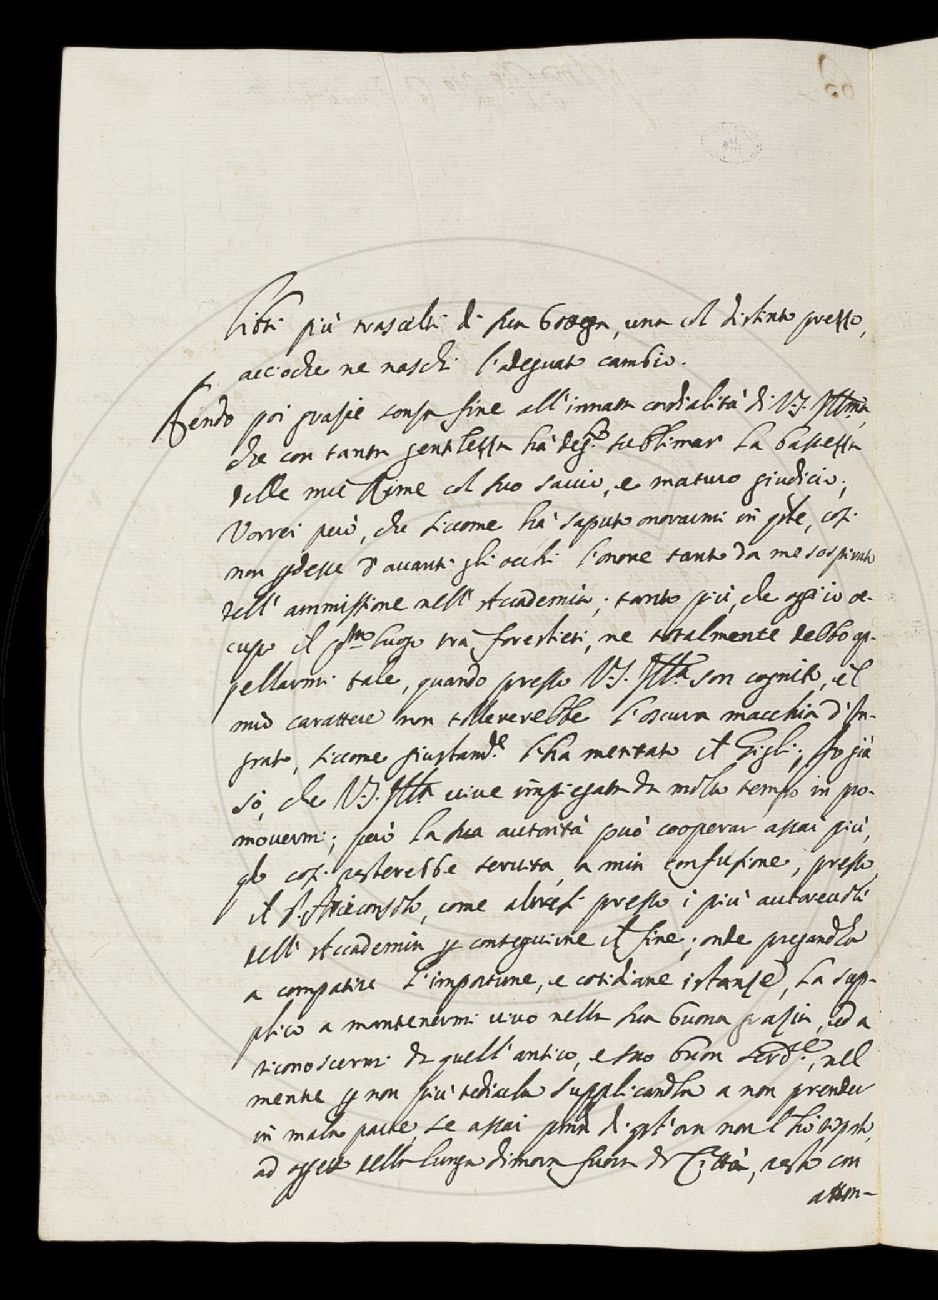 libri più trascelti di sua bottega, una col distinto prezzo,
acciocche ne naschi l'adeguato cambio.
Rendo poi grazie senza fine all'innata cordialità di V.S. Illma,
che con tanta gentilezza hà deg.to sublimar la bassezza
delle mie Rime col suo savio, e maturo giudicio;
Vorrei però, che siccome hà saputo onorarmi in qste, così
non pdesse d'avanti gli occhi l'onore tanto da me sospirato
dell'ammissione nell'Accademia; tanto più, che oggi io oc-
cupo il pmo luogo trà forestieri, ne totalmente debbo ap-
pellarmi tale, quando presso V.S. Illma son cognito, e 'l
mio carattere non tollererebbe l'oscura macchia d'In-
grato, siccome giustam.e l'ha meritato il Gigli; Io già
sò, che V.S. Illma vive impiegata da molto tempo in pro-
movermi; però la sua autorità può cooperar assai più,
qdo così resterebbe servita, a mia confusione, presso
il S. Arciconsolo, come altresì presso i più autorevoli
dell'Accademia p conseguirne il fine; onde pregandola
a compatire l'importune, e cotidiane istanze, la sup-
plico a mantenermi vivo nella sua buona grazia, ed a
riconoscermi da quell'antico, e suo buon serd.e, nel
mentre p non più tediarla supplicandola a non prender
in mala parte, se assai pma di qst'ora non l'hò rispsto,
ad oggetto della lunga dimora fuora di Città, resto con
attm-